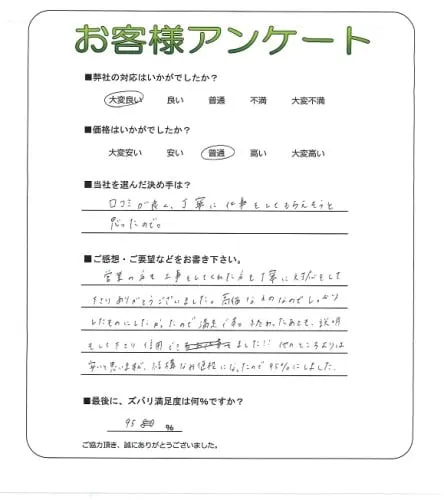 お客様アンケート
■弊社の対応はいかがでしたか？
大変良い 良い 普通 不満 大変不満
■価格はいかがでしたか？
大変安い 安い 普通 高い 大変高い
■当社を選んだ決め手は？
口コミが良く、丁寧に仕事をしてもらえそうと
思ったので。
■ご感想・ご要望などをお書き下さい。
営業の方も工事をしてくれた方も丁寧に対応をして
下さりありがとうございました。高価なものなのでしっかり
したものにしたかったので満足です。 終わったあとも、説明
をして下さり信用できました!! 他のところよりは
安いと思いますが、結構なお値段になったので95%にしました。
■最後に、ズバリ満足度は何%ですか？
95 %
ご協力頂き、誠にありがとうございました。